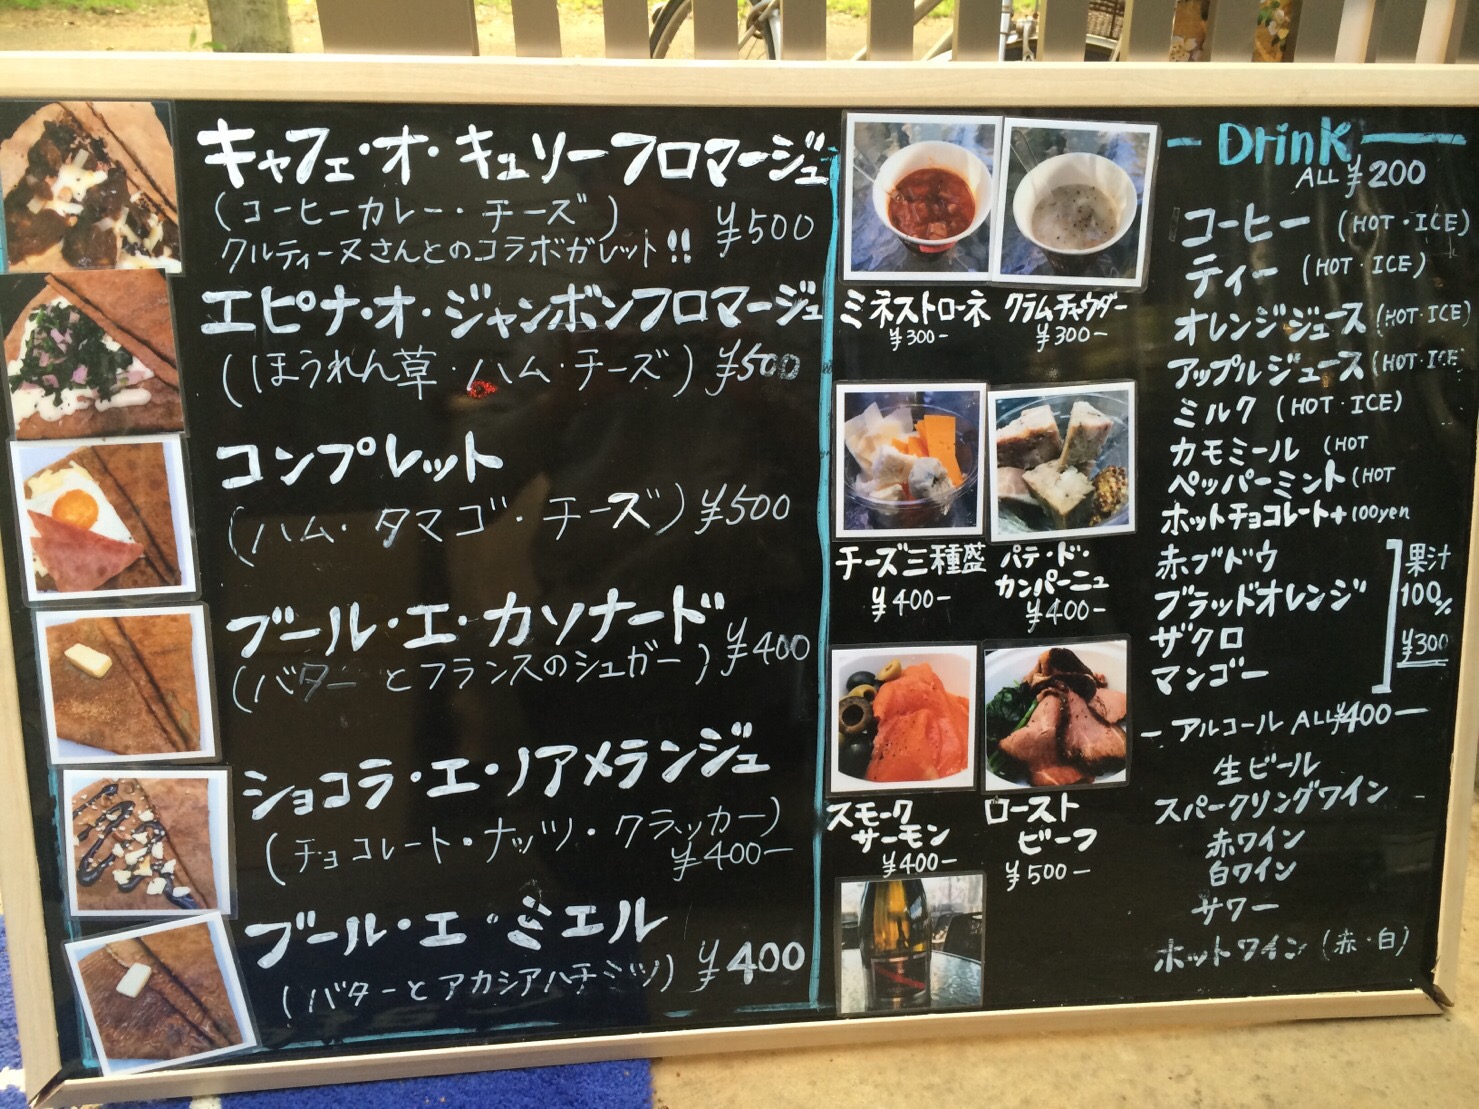 キャフェ・オ・キュリーフロマージュ
(コーヒーカレー・チーズ) ¥500
クルティーヌさんとのコラボガレット!!
エピナ・オ・ジャンボンフロマージュ
(ほうれん草・ハム・チーズ) ¥500
コンプレット
(ハム・タマゴ・チーズ) ¥500
ブール・エ・カソナード
(バターとフランスのシュガー) ¥400
ショコラ・エ・ノアメランジュ
(チョコレート・ナッツ・クラッカー)
¥400-
ブール・エ・ミエル
(バターとアカシアハチミツ) ¥400
ミネストローネ
¥300-
クラムチャウダー
¥300-
チーズ三種盛
¥400-
パテ・ド・
カンパーニュ
¥400-
スモーク
サーモン
¥400-
ロースト
ビーフ
¥500-
- Drink -
ALL ¥200
コーヒー (HOT・ICE)
ティー (HOT・ICE)
オレンジジュース (HOT・ICE)
アップルジュース (HOT・ICE
ミルク (HOT・ICE)
カモミール (HOT
ペッパーミント (HOT
ホットチョコレート+100yen
赤ブドウ
ブラッドオレンジ
ザクロ
マンゴー
果汁
100%
¥300
- アルコール ALL¥400-
生ビール
スパークリングワイン
赤ワイン
白ワイン
サワー
ホットワイン (赤・白)